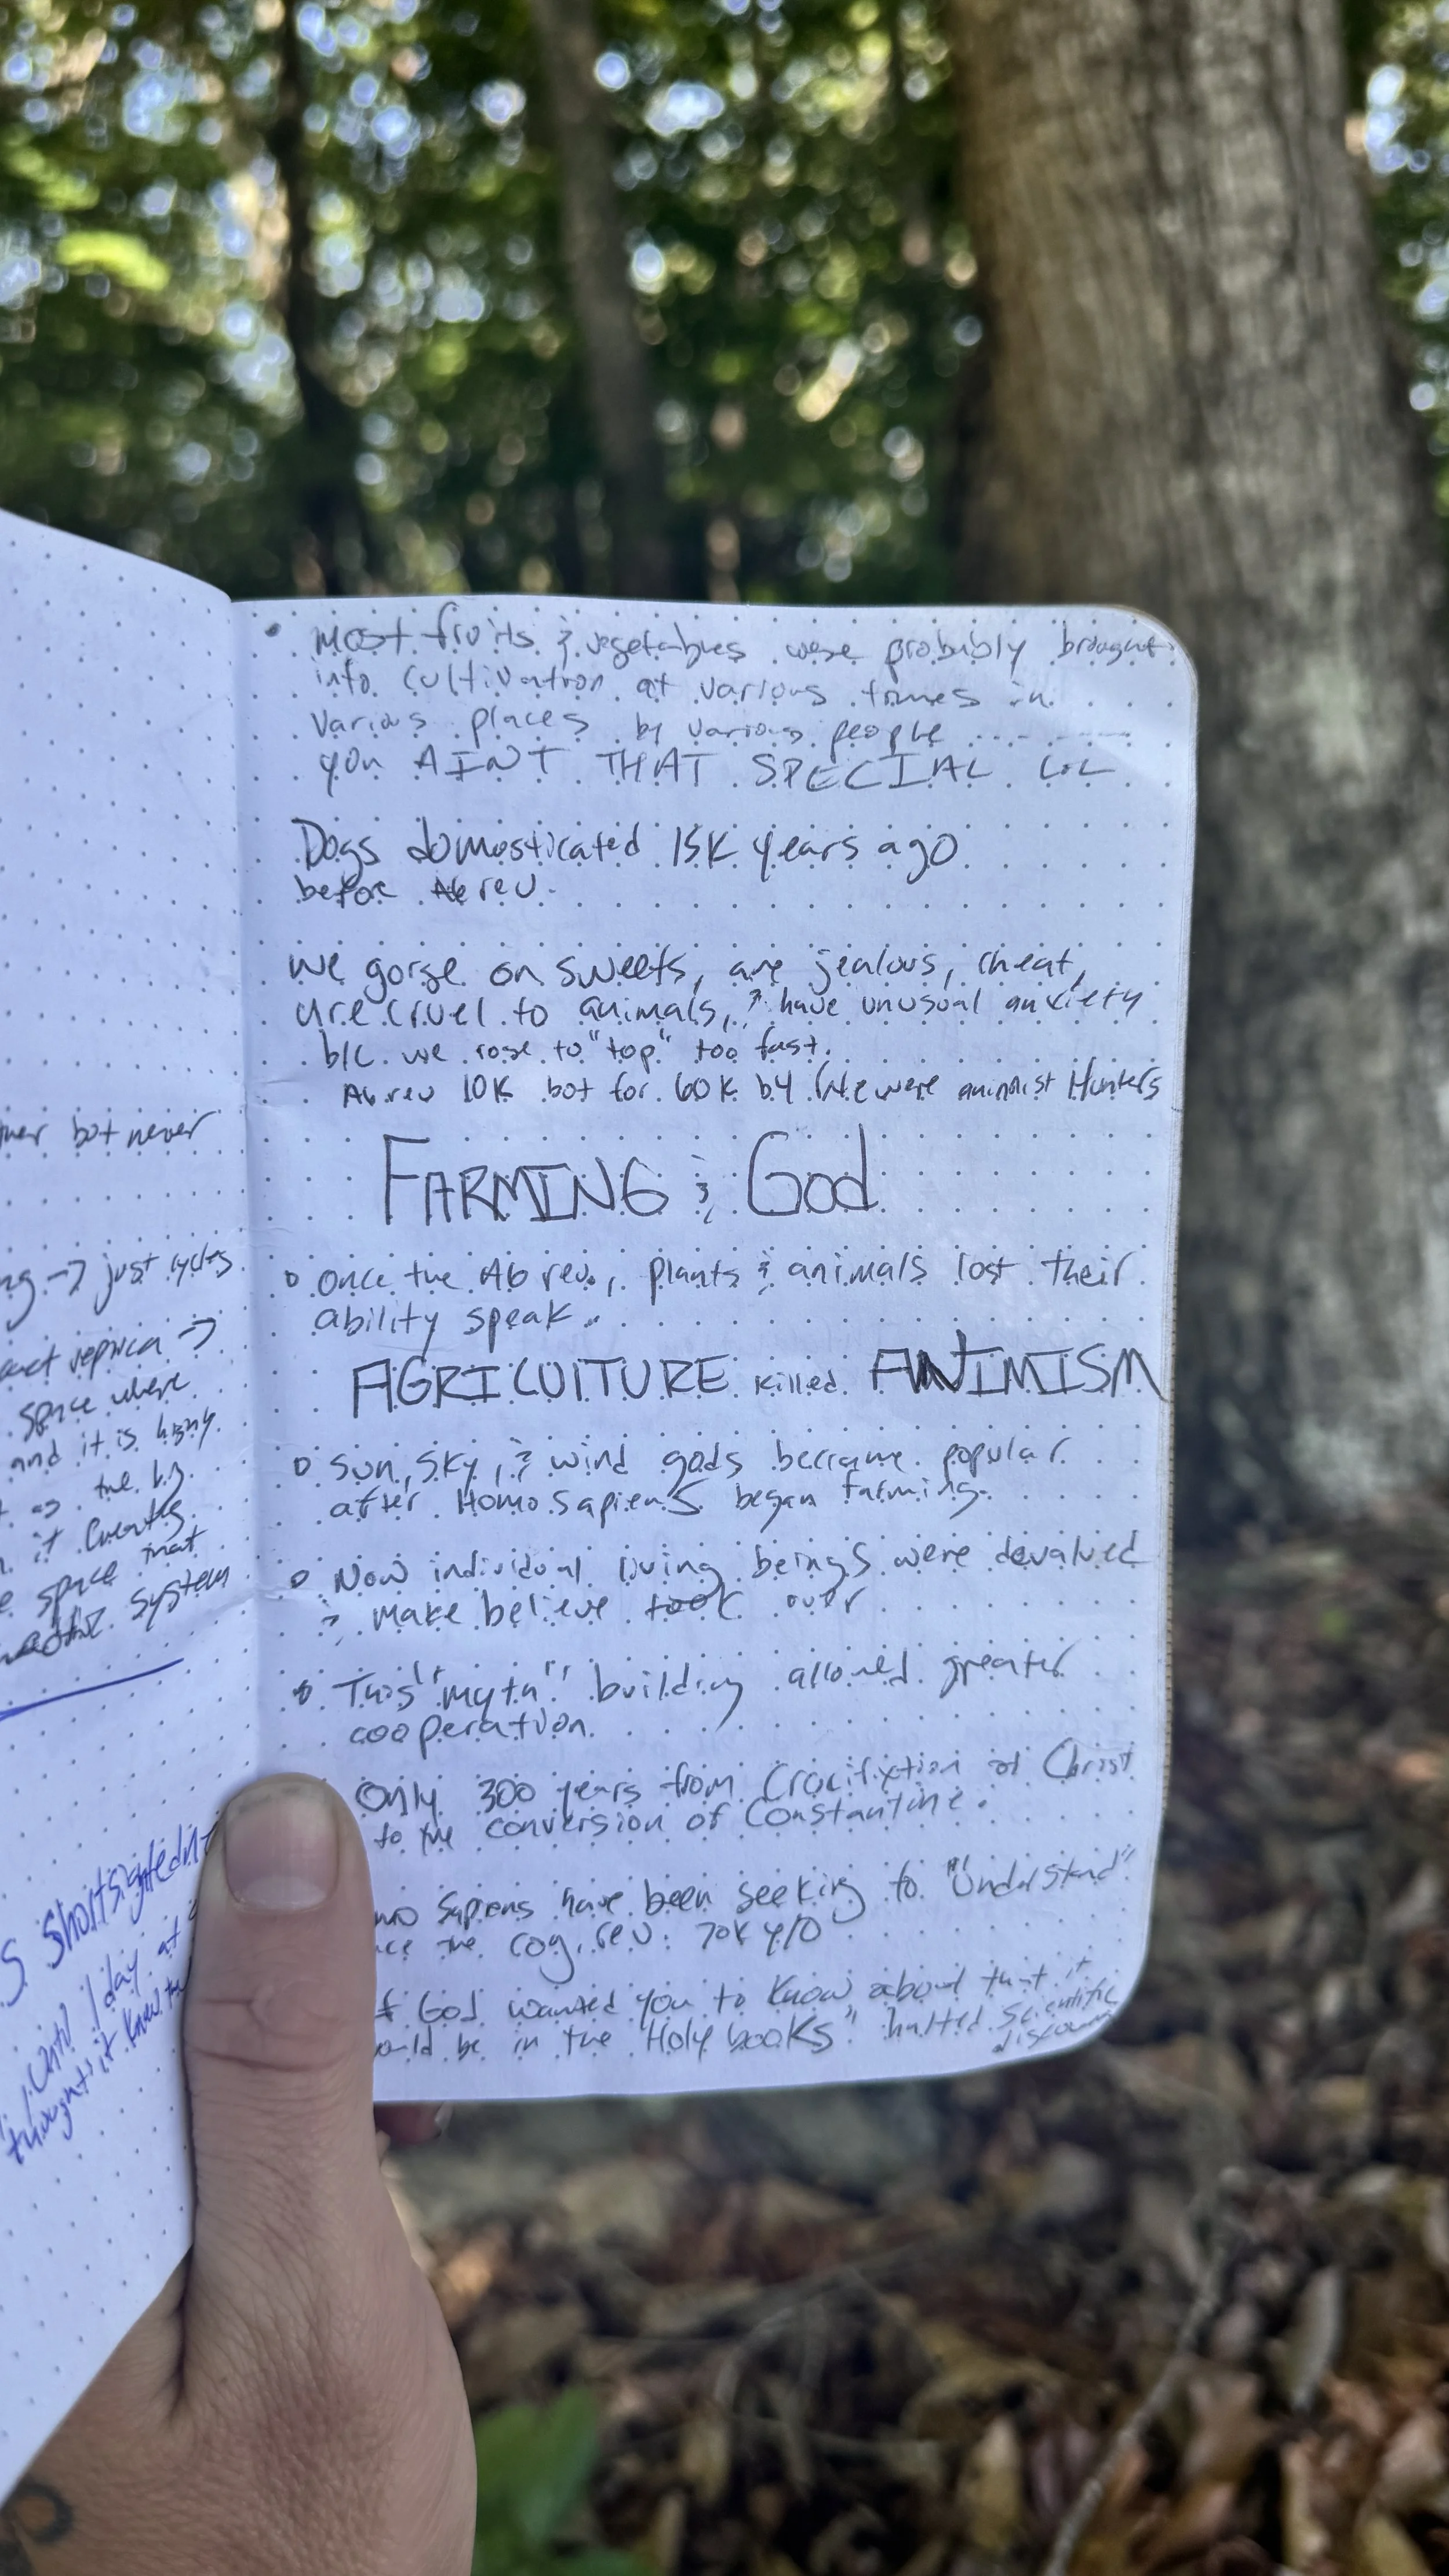 mer but never
ng → just cycles
exact replica →
space where
and it is hwy.
as the big
it creates
space that
system
S Shortsightedn
until 1 day at
thought it knew th
• Most fruits & vegetables were probably brought
into cultivation at various times in
various places by various people ........
you AINT THAT SPECIAL LOL
Dogs domosticated 15K years ago
before Ag rev.
We gorge on sweets, are jealous, cheat,
are cruel to animals, & have unusual anxiety
b/c we rose to "top" too fast.
Ag rev 10K but for 60K b4 we were animist Hunters
FARMING & God
○ Once the Ag rev., plants & animals lost their
ability speak.
AGRICULTURE killed ANIMISM
○ Sun, sky, & wind gods became popular
after Homo sapiens began farming.
○ Now individual living beings were devalued
& make believe took over
○ This "myth" building allowed greater
cooperation.
Only 300 years from Crucifixtion of Christ
to the conversion of Constantine.
mo Sapiens have been seeking to "Understand"
nce the cog. rev. 70K y/o
f God wanted you to know about that it
ould be in the "Holy books" halted scientific
discovery